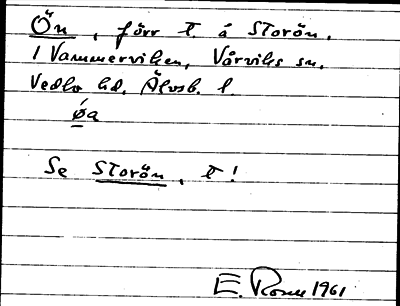 Ön, förr t. å Storön.
i Vammerviken, Vårviks sn.
Vedbo hd. Älvsb. l.
öa
Se Storön, t!
E. Rosén 1961